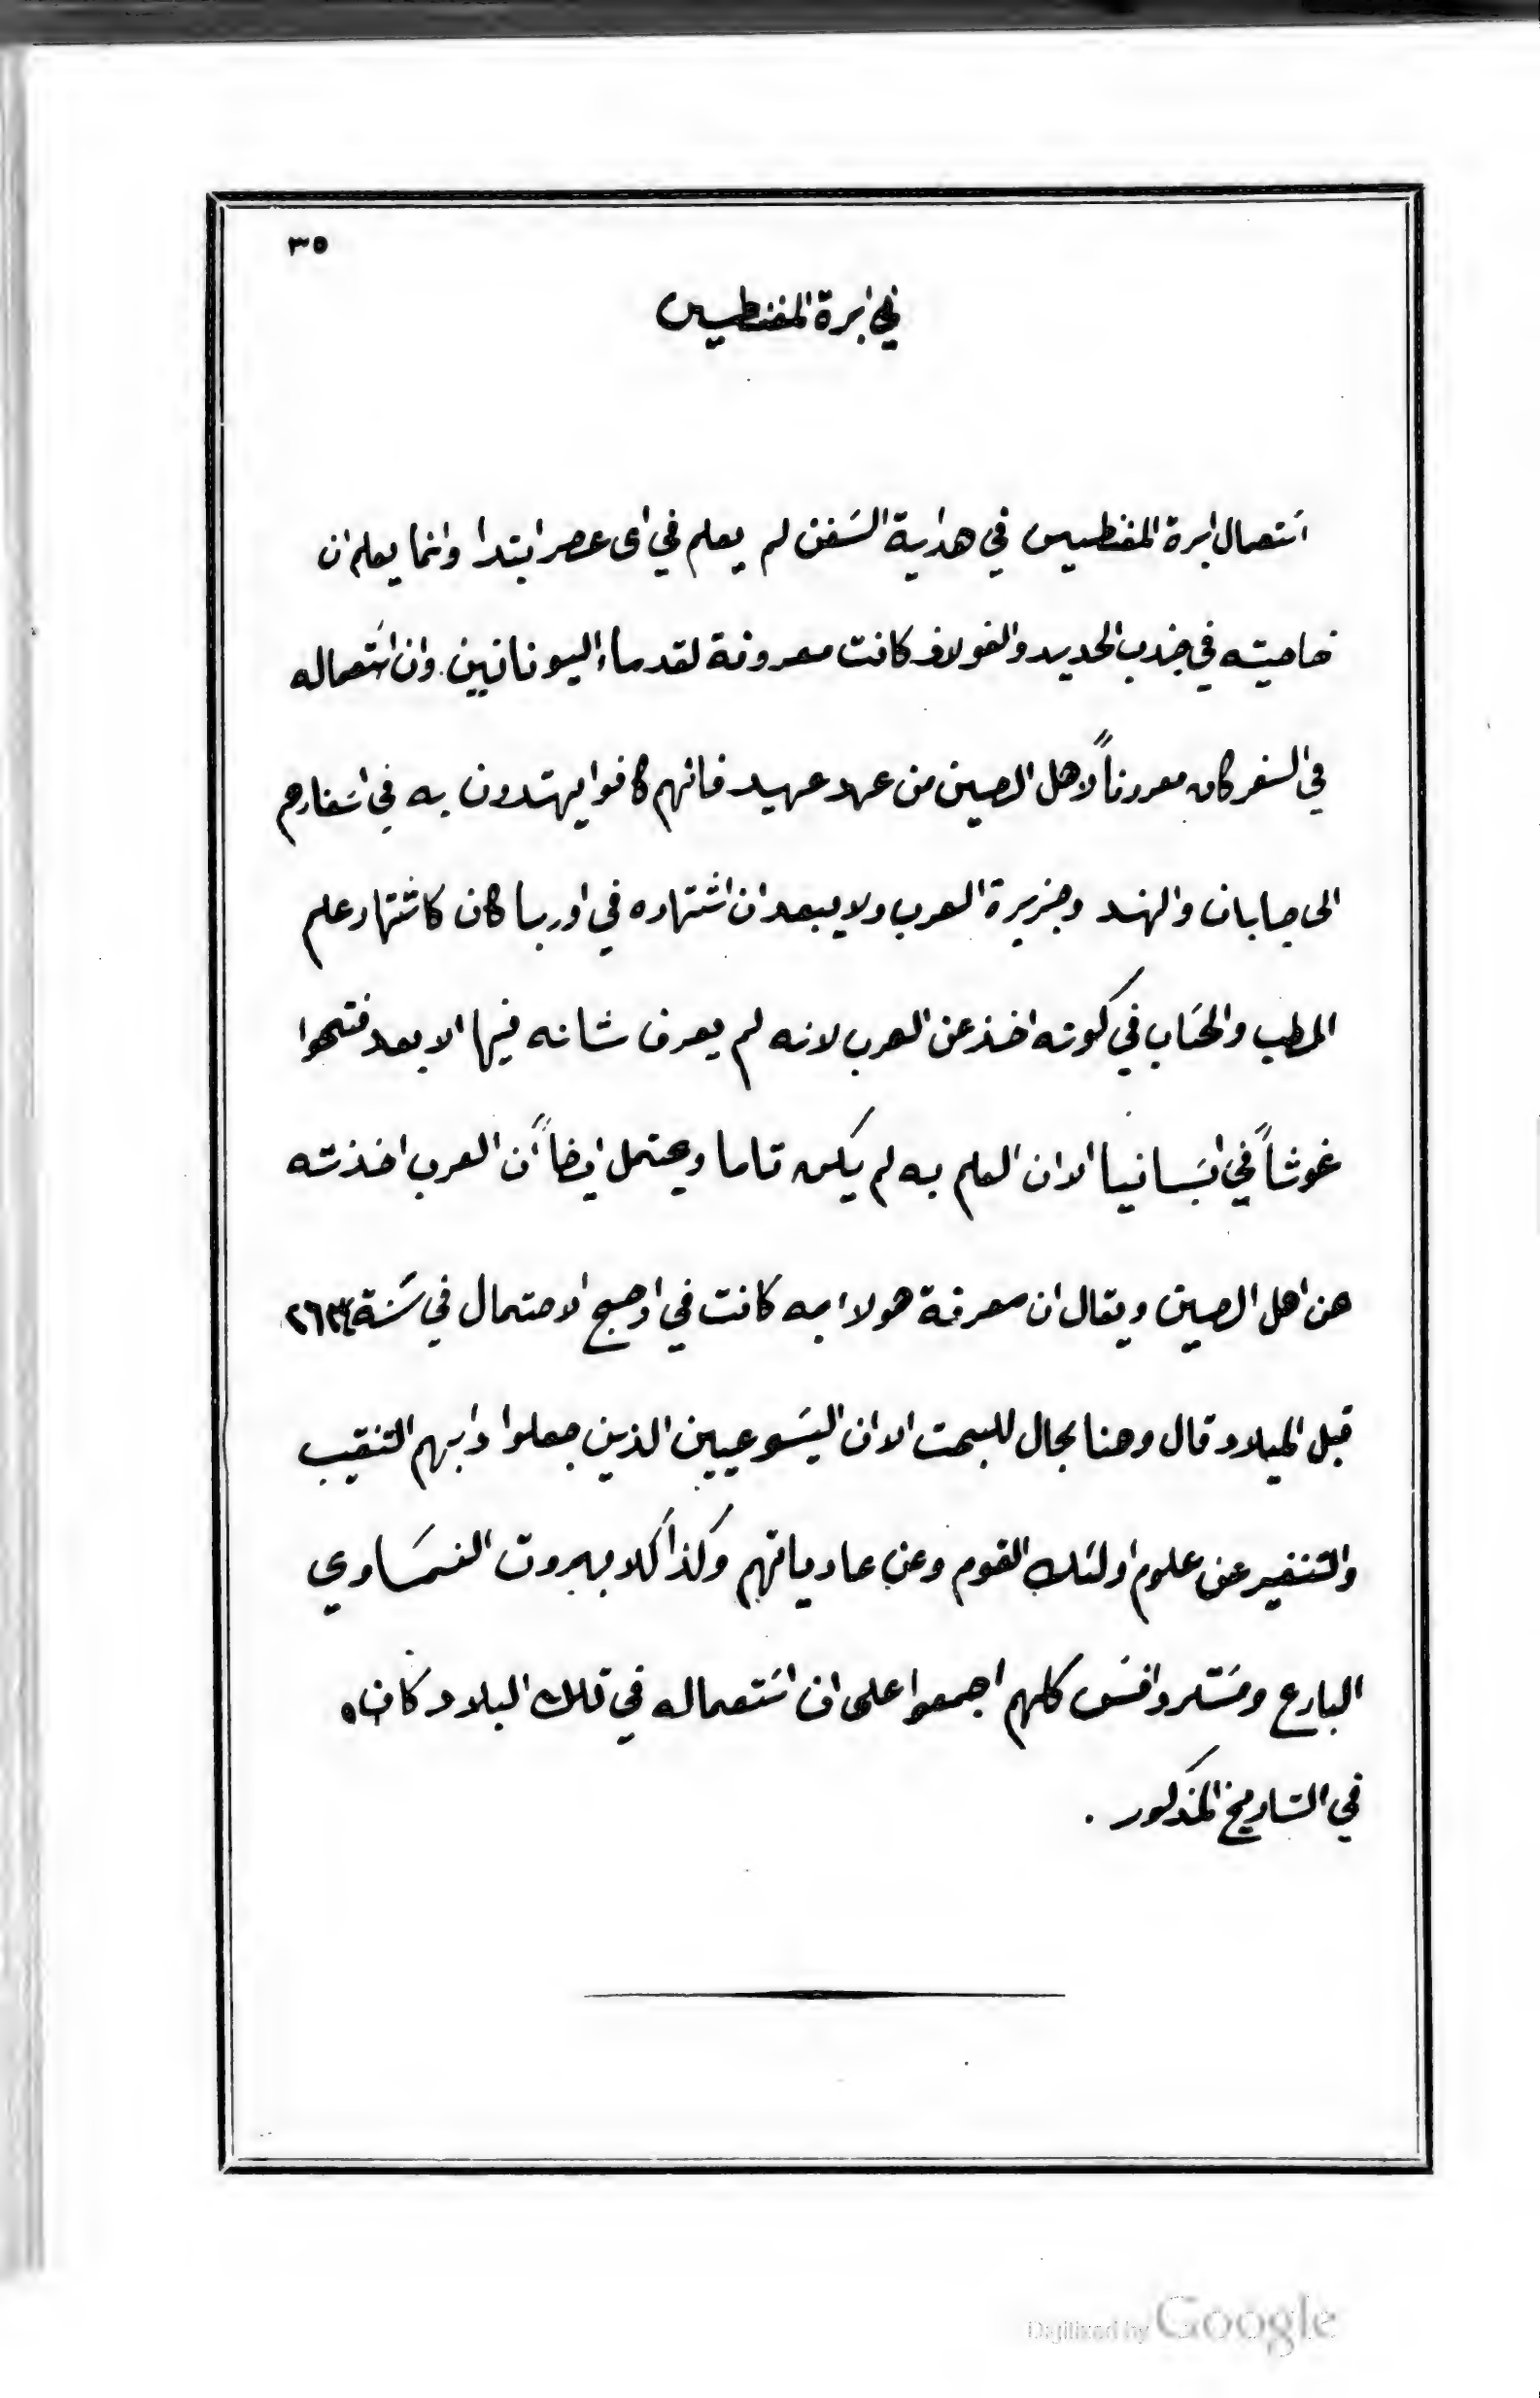 ٣٥
في ابرة المغنطيس
استعمال ابرة المغنطيس في هداية السفن لم يعلم في اى عصر ابتدا وانما يعلم ان
خاصيته في جذب الحديد والفولاذ كانت معروفة لقدماء اليونانيين وان استعماله
في السفر كان معروفاً لاهل الصين من عهد عهيد فانهم كانوا يهتدون به في اسفارهم
الى جابان والهند وجزيرة العرب ولا يبعد ان اشتهاره في اوربا كان كاشتهار علم
الطب والحساب في كونه اخذ عن العرب لانه لم يعرف شانه فيها الا بعد فتحوا
غوثاً في اسبانيا الا ان العلم به لم يكن تاما ويحتمل ايضاً ان العرب اخذته
عن اهل الصين ويقال ان معرفة هولاء به كانت في ارجح الاحتمال في سنة ٢٦٣٤
قبل الميلاد قال وهنا مجال للبحث الا ان اليسوعيين الذين جعلوا دابهم التنقيب
والتنقير عن علوم اولئك القوم وعن عادياتهم وكذا كلابهروت النمساوي
البارع ومستر دافس كلهم اجمعوا على ان استعماله في تلك البلاد كان
في التاريخ المذكور .
Digitized by Google